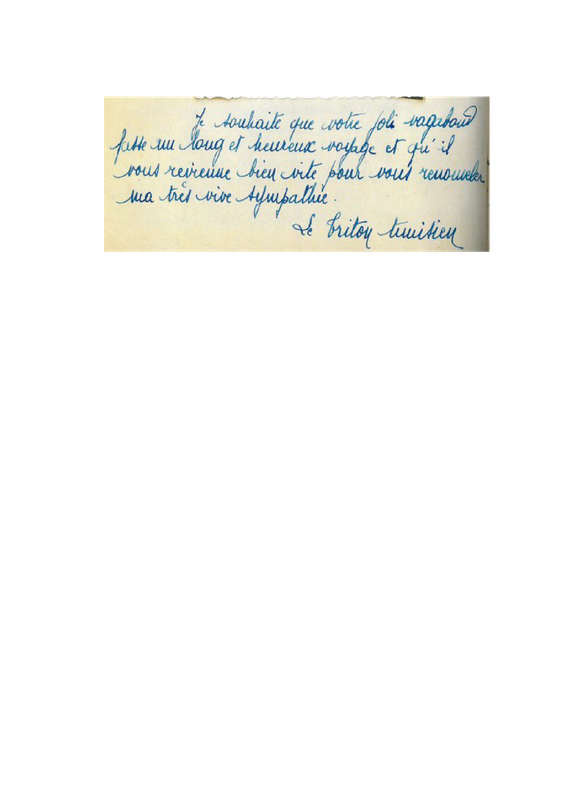 Je souhaite que votre joli vagabond
fasse un long et heureux voyage et qu'il
vous revienne bien vite pour vous renouveler
ma très vive sympathie.
Le Triton tunisien